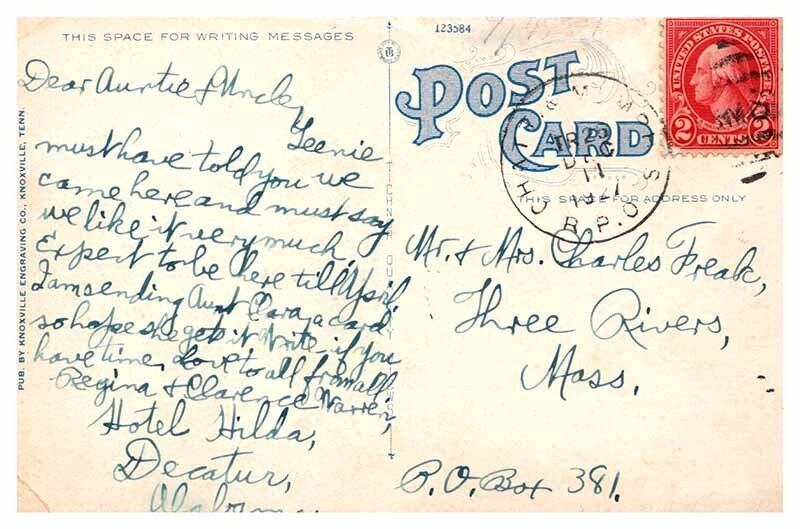 THIS SPACE FOR WRITING MESSAGES
Dear Auntie & Uncle,
Teenie
must have told you we
came here and must say
we like it very much,
Expect to be here till April,
I am sending Aunt Clara a card
so hope she gets it. Write if you
have time, Love to all from all
Regina & Clarence Warren,
Hotel Hilda,
Decatur,
Alabama
PUB. BY KNOXVILLE ENGRAVING CO., KNOXVILLE, TENN.
123584
POST
CARD
CHAT & MEM
R.P.O.
TR 25
DEC
11
1927
UNITED STATES POSTAGE
2 CENTS 2
THIS SPACE FOR ADDRESS ONLY
Mr. & Mrs. Charles Freak,
Three Rivers,
Mass.
P.O. Box 381.